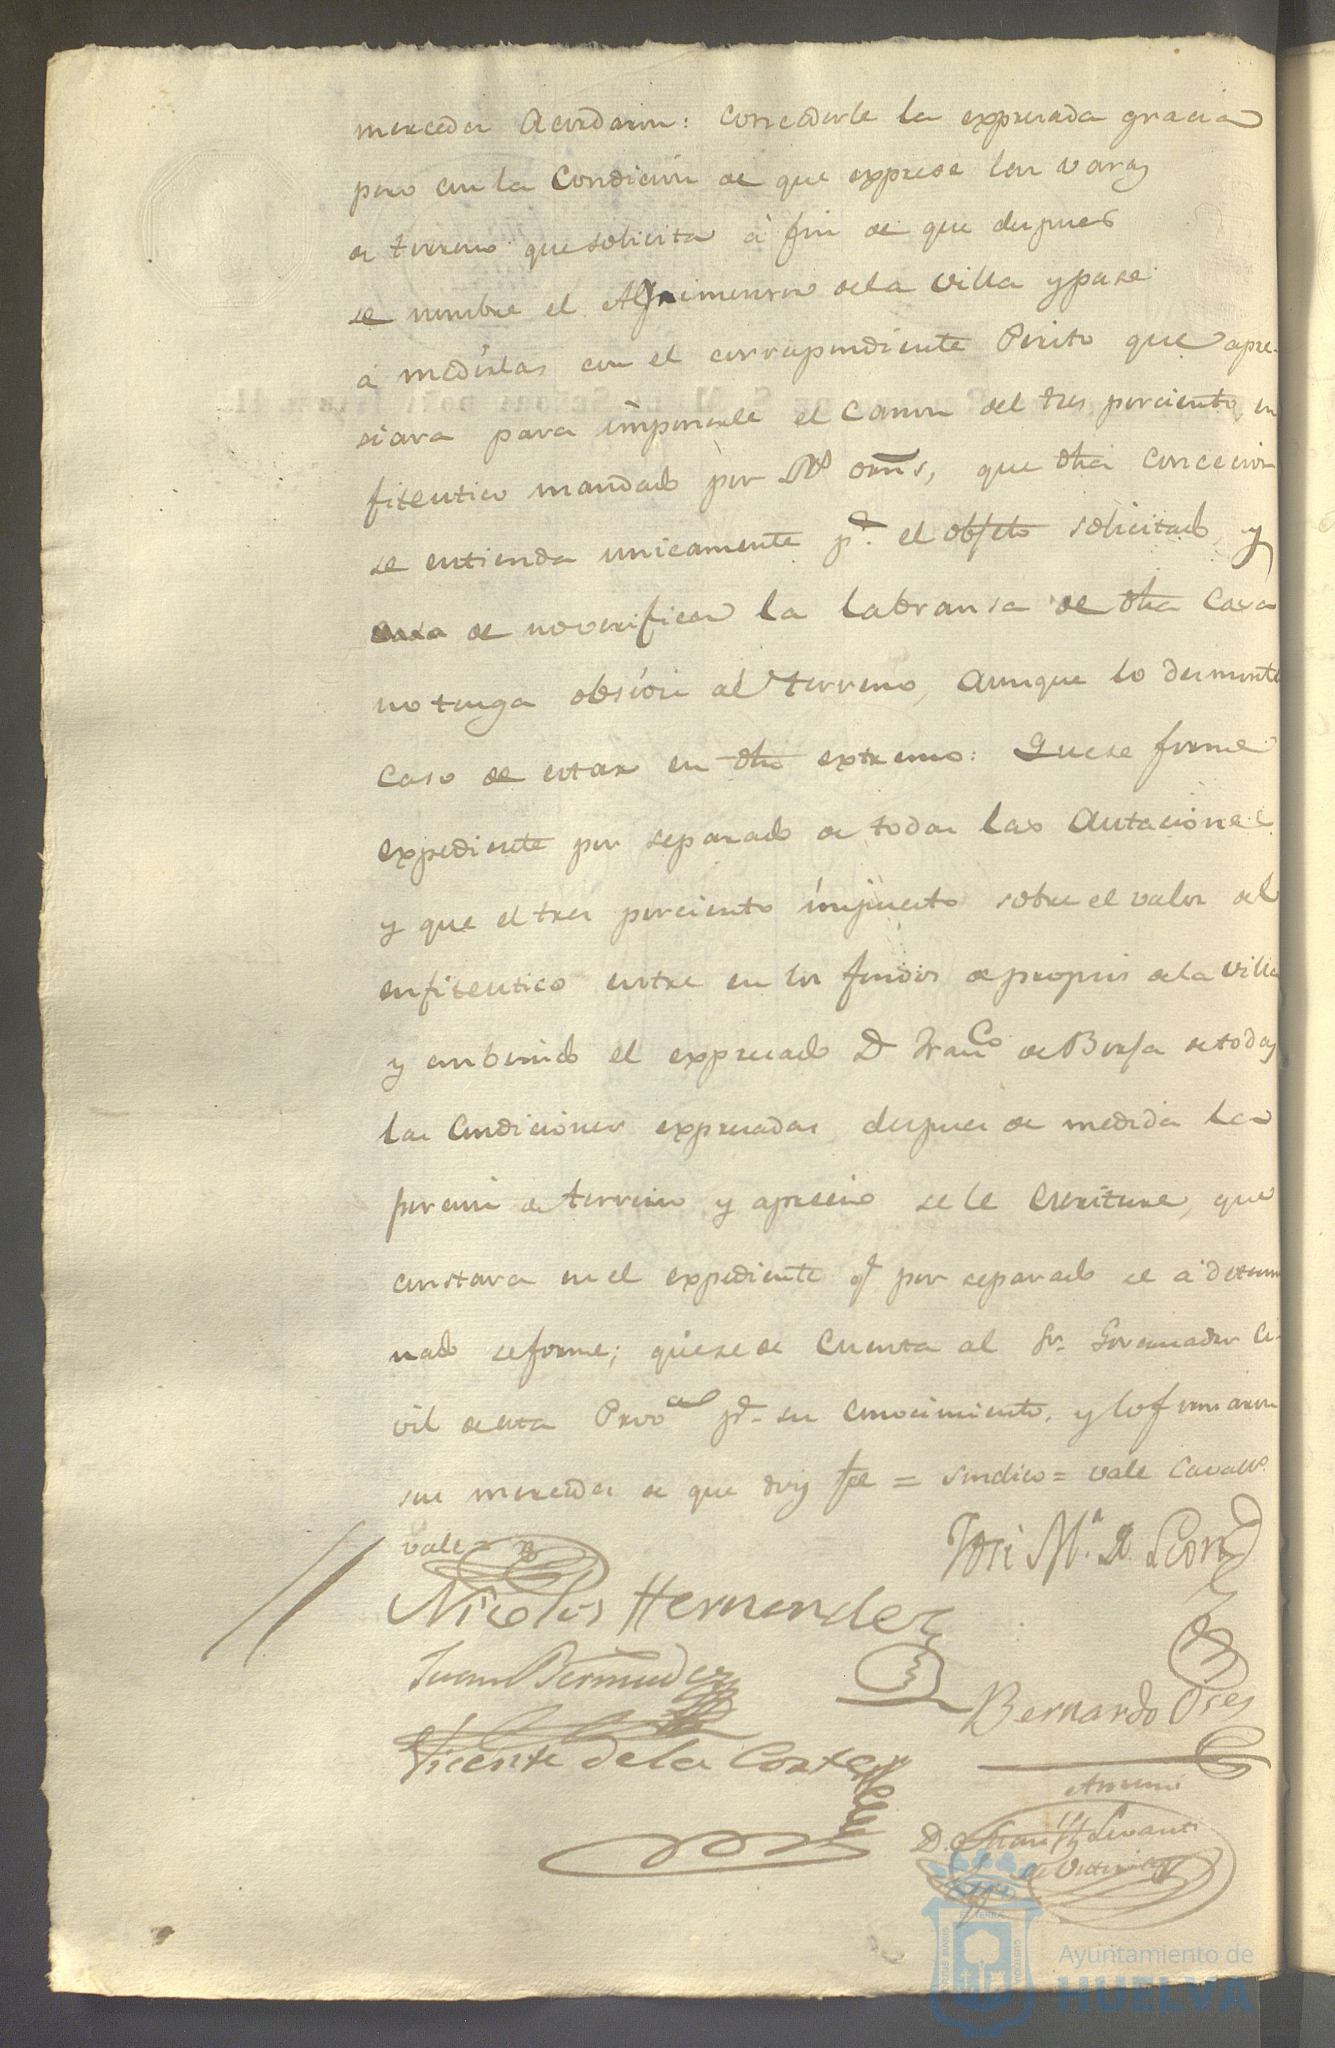 mercedes Acordaron: Concederle la expresada gracia
pero con la Condicion de que exprese las varas
de terreno que solicita à fin de que despues
se nombre el Agrimensor de la Villa y pase
à medirlas con el correspondiente Perito que apre-
siara para imponerle el Canon del tres por ciento en
fiteutico mandado por Rs orns, que dha concecion
se entienda unicamente pa. el objeto solicitado, y
caso de no verificar la labransa de dha Casa
no tenga obsion al terreno, aunque lo desmonte
caso de estar en dho extremo: Que se forme
expediente por separado de todas las Autaciones
y que el tres por ciento impuesto sobre el valor del
enfiteutico entre en los fondos de propios de la Villa
y enbenido el expresado Dn Franco de Borja de todas
las Condiciones expresadas despues de medida la
porcion de terreno y aprecio se le Escriture, que
constara en el expediente qe por separado se à determi
nado se forme; que se de Cuenta al Sr. Governador Ci-
vil de esta Provca pa. su conocimiento, y lo firmaron
sus mercedes de que doy fee = sindico = vale Cavallo.
vale =
José Ma. de Leon
Nicolás Hernandez
Juan Bermudez
Bernardo Oses
Vicente de la Corte
Ante mi
D. Juan
Ayuntamiento de
HUELVA